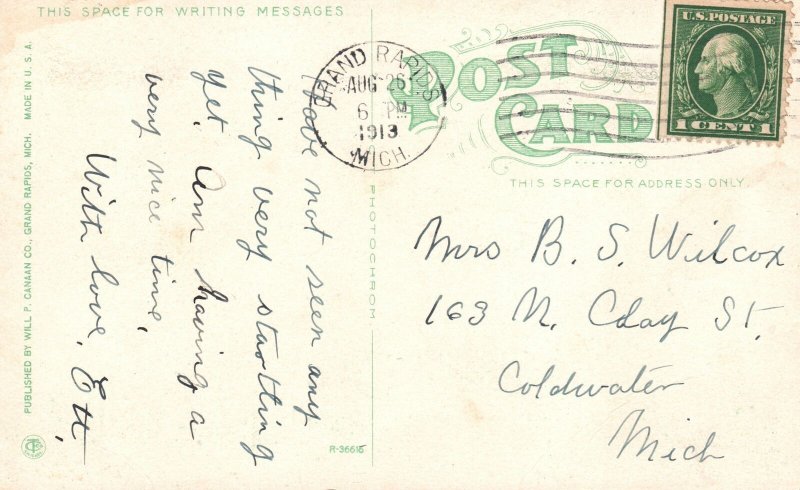 THIS SPACE FOR WRITING MESSAGES
POST
CARD
THIS SPACE FOR ADDRESS ONLY.
U.S. POSTAGE
1 CENT 1
GRAND RAPIDS
AUG 26
6 PM
1913
MICH.
Have not seen any
thing very startling
yet. Am having a
very nice time.
With love, Ett.
Mrs B. S. Wilcox
163 N. Clay St.
Coldwater
Mich
PHOTOCHROM
R-36615
PUBLISHED BY WILL P. CANAAN CO., GRAND RAPIDS, MICH. MADE IN U. S. A.